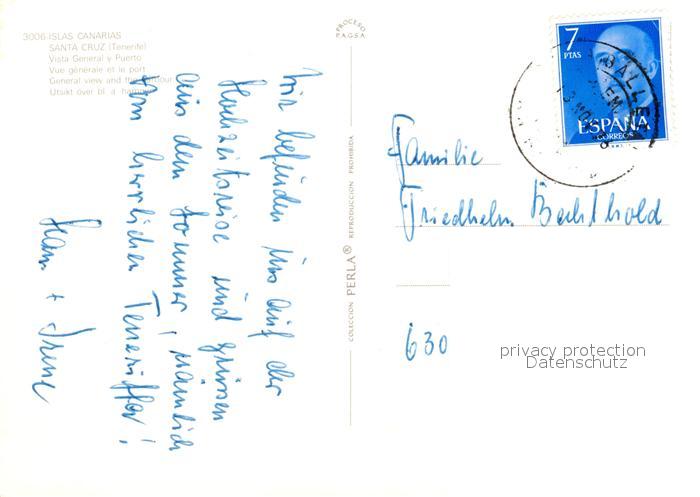 3006-ISLAS CANARIAS
SANTA CRUZ (Tenerife)
Vista General y Puerto
Vue générale et le port
General view and the harbour
Utsikt över bl a hamnen
PROCESO
P.A.G.S.A.
Wir befinden uns auf der
Hochzeitsreise und grüssen
aus dem Sommer, nämlich
vom herrlichen Teneriffa!
Hans + Irene
COLECCION PERLA® REPRODUCCION PROHIBIDA
7
PTAS
ESPAÑA
CORREOS
Familie
Friedhelm Bechthold
630
privacy protection
Datenschutz